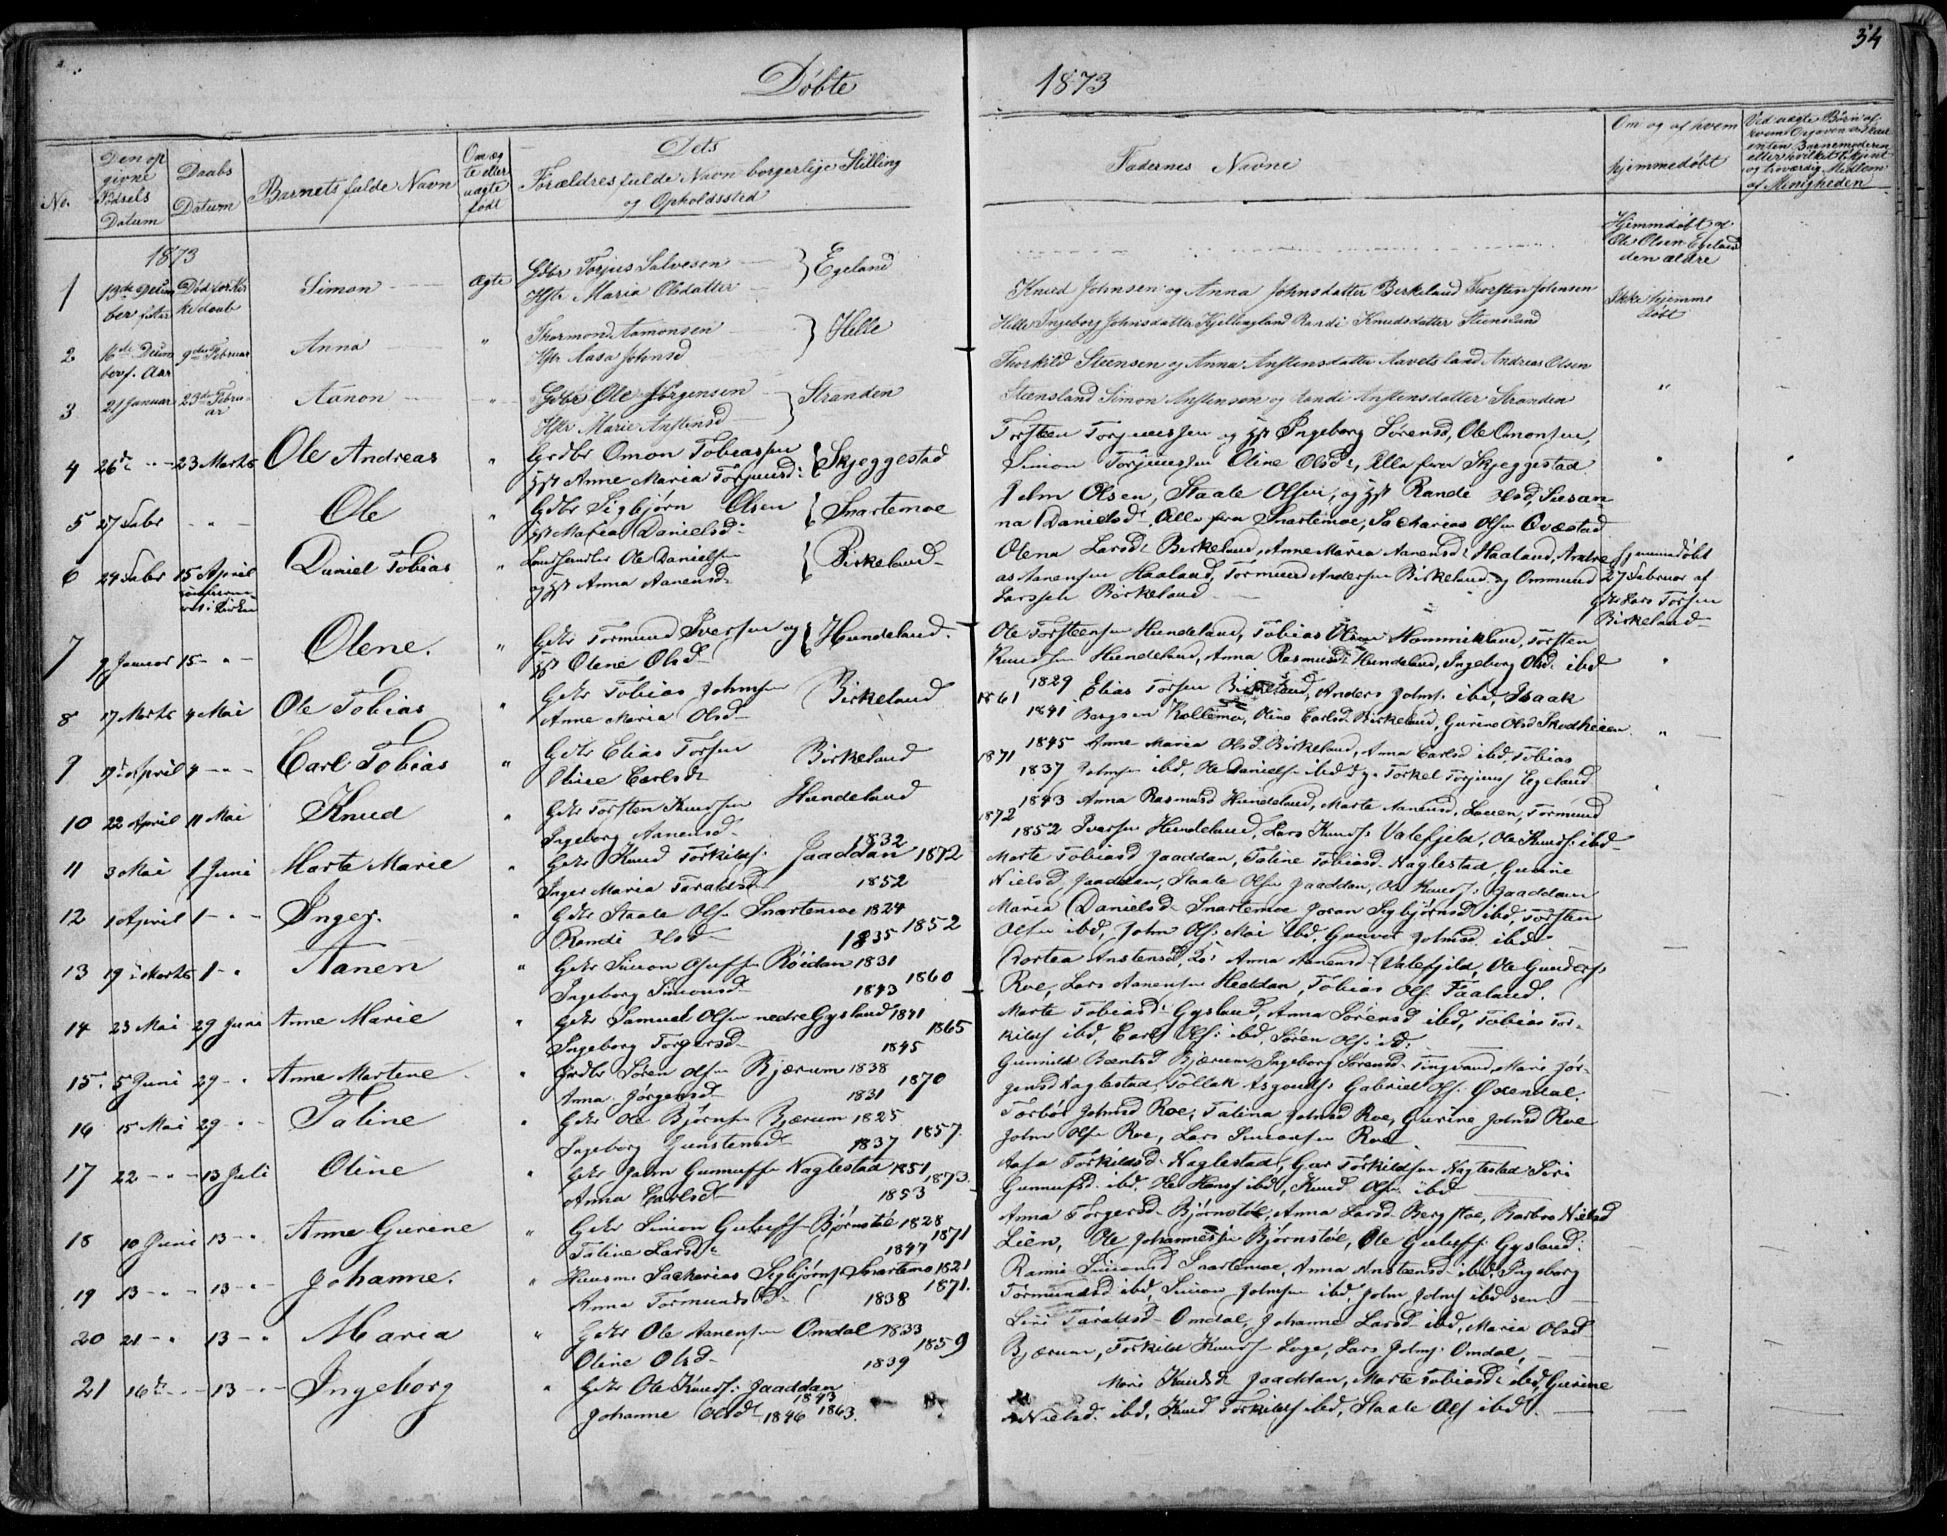 34
Døbte 1873
No.
Den op
givne
Fødsels
Datum
Daabs
Datum
Barnets fulde Navn
Om æg
te eller
uægte
født
Dets
Forældres fulde Navn borgerlige Stilling
og Opholdssted
Fadernes Navne
Om og af hvem
hjemmedøbt
Ved uægte Børn af
hvem Opgaven er skeet
enten Barnemoderen
eller hvilket bekjent
og troværdig Medlem
af Menigheden
1873
1 Simon Ægte Gdbr Torjus Salvesen } Egeland
Hstr Maria Olsdatter
Hjemmdøbt af
Ole Olsen Egeland
den ældre
2 9de Februar Anna " Thormod Aamonsen } Helle
Hstr Aasa Johnsd
Knud Johnsen og Anna Johnsdatter Birkeland Thorsten Johnsen
Helle Ingeborg Johnsdatter Kjellingland Randi Knudsdatter Steensland
Ikke hjemme
døbt
3 21 Januar 23de Febru-
ar Aanon " Gdbr Ole Jørgensen } Stranden
Hstr Marie Anstensd
Thorkild Steensen og Anna Anstensdatter Aavetsland Andreas Olsen
Steensland Simon Anstensen og Randi Anstensdatter Stranden
"
4 26de " 23 Marts Ole Andreas " Grdbr Omon Tobiassen } Skjeggestad
Hst Anne Maria Torjuusd:
Torsteen Torjuussen og Hst Ingeborg Sørensd, Ole Omonsen,
Simon Torjuussen Oline Olsdr, Alle fra Skjeggestad
5 27 Febr Ole " Gdbr Sigbjørn Olsen } Snartemoe
Hst Maria Danielsd
John Olsen, Staale Olsen, og Hst Randi Olsd, Susan-
na Danielsd, Alle fra Snartemoe, Sacharias Olsen Qvæstad
6 24 Febr 15 April Daniel Tobias " Landhandler Ole Danielsen } Birkeland
og Hst Anna Aanensd
Olena Larsd Birkeland, Anne Maria Aanensd Haaland, Andre
as Aanensen Haaland, Tormund Andersen Birkeland og Ommund
Larssen Birkeland
Hjemmdøbt
27 Februar af
Gdbr Lars Torsen
Birkeland
7 9 Januar 15 - " Olene. " Gdbr Tormund Iversen og } Hundeland.
Hst Olene Olsd
Ole Torsteensen Hundeland, Tobias Olsen Hommikland, Torsten
Knudsen Hundeland, Anna Rasmusd Hundeland, Ingeborg Olsd: ibd
8 17 Marts 4 Mai Ole Tobias " Gdbr Tobias Johnsen Birkeland
Anne Maria Olsd
1861 1829 Elias Torsen Birkeland, Anders Johns. ibd, Isaak
1841 Bergsen Kollemo, Oline Carlsd Birkeland, Gurine Olsd Skodheien
9 9de April 4 - " Carl Tobias " Gdbr Elias Torsen Birkeland
Oline Carlsdr
1871 1845 Anne Maria Olsd Birkeland, Anna Carlsd ibd, Tobias
1837 Johnsen ibd, Ole Danielsen ibd og Torkel Torjuus. Egeland
10 22 April 11 Mai Knud " Gdbr Torsten Knudsen Hundeland
Ingeborg Aanensd
1872 1843 Anna Rasmusd Hundeland, Marte Aanensd, Lauen, Tormund
1852 Iversen Hundeland, Lars Knuds Valefjeld, Ole Knuds: ibd
11 3 Mai 1 Juni Marte Marie " Gdbr Knud Torkilds: Jaaddan 1832 1872
Inger Maria Taraldsd 1852
Marte Tobiasd Jaaddan, Taline Tobiasd Naglestad, Gurine
Nielsd Jaaddan, Staale Olsen Jaaddan, Ole Knuds: Jaaddan
12 1 April 1 - " Inger. " Gdbr Staale Ols Snartemoe 1824 1852
Randi Olsd 1835
Maria Danielsd Snartemoe Joran Sigbjørnsd ibd, Torsten
Olsen ibd, John Ols: Moi ibd, Gunvor Johnsd ibd
13 19 Marts 1 - " Aanen " Gdbr Simon Røidan 1831 1860
Ingeborg Simonsd 1843
Dortea Anstensd, Anna Aanensd Valefjeld, Ole Gunders:
Roe, Lars Aanensen Heddan, Tobias Ols: Faaland.
14 23 Mai 29 Juni Anne Marie " Gdbr Samuel Olsen nedre Gysland 1841 1865
Ingeborg Torgersd 1845
Marte Tobiasd: Gysland, Anna Sørensd ibd, Tobias Tor-
kilds ibd, Carl Ols: ibd, Søren Ols: ibd:
15. 5 Juni 29 - " Anne Martine " Grdbr Søren Olsen Bjærum 1838 1870
Anna Jørgensd 1831
Gunnild Berntsd Bjærum, Ingeborg Sørensd Tingvand, Mari Jør-
gensd Naglestad, Tollak Asgouds Gabriel Ols: Oxendal.
16 15 Mai 29 - " Taline " Gdbr Ole Bjørns Bjærum 1825 1857
Ingeborg Gunstensd 1837
Torbør Johnsd Roe, Talina Johnsd Roe, Gurine Johnsd Roe
John Olsen Roe, Lars Simonsen Roe.
17 22 - " - 13 Juli Oline " Gdbr Jaan Gunnufs Naglestad 1851 1873.
Anna Carlsd 1853
Aasa Torkildsd Naglestad, Gar Torkildsen Naglestad Siri
Gunnufsd. ibd, Ole Hans ibd, Knud Ols: ibd
18 10 Juni 13 - " Anne Gurine " Gdbr Simon Gulufs Bjørnstøl 1828 1871
Taline Larsdr 1847
Anna Torgersd Bjørnstøl, Anna Larsd Bergstøe, Barbro Nielsd
Lien, Ole Johannessen Bjørnstøl, Ole Gulufs: Gysland:
19 13 - " - 13 - " - Johanne. " Huusm. Sacharias Sigbjørns Snartemo 1821 1871.
Anna Tormundsd 1838
Rannei Simonsd Snartemoe, Anna Anstensd ibd, Ingeborg
Tormundsd ibd, Simon Johnsen ibd, John Johns ibd sen.
20 21 - " 13 - " Maria " Gdbr Ole Aanensen Omdal 1833 1859
Oline Olsd 1839
Siri Taraldsd Omdal, Johanne Larsd ibd, Maria Olsd
Bjærum, Torkild Knuds Loge, Lars Johns: Omdal,
21 16de - " 13 - " - Ingeborg " Gdbr Ole Knuds: Jaaddan 1843 1863.
Johanne Olsdr 1846
Mari Knudsd Jaaddan, Marte Tobiasd ibd, Gurine
Nielsd. ibd, Knud Torkilds ibd, Staale Ols ibd.